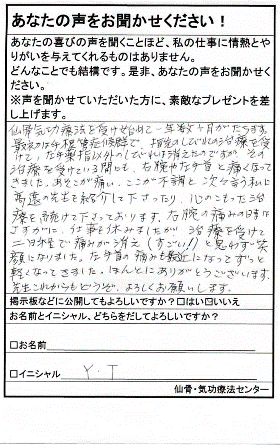 あなたの声をお聞かせください！
あなたの喜びの声を聞くことほど、私の仕事に情熱とや
りがいを与えてくれるものはありません。
どんなことでも結構です。是非、あなたの声をお聞かせく
ださい。
※声を聞かせていただいた方に、素敵なプレゼントを差
し上げます。
仙骨気功療法を受け始めて一年数ヶ月がたちます。
治療を受けている間も、右腕や左手首と痛くなって
きました。あそこが痛い、ここが不調と次々言う私に
先生を紹介して下さったり、心のこもった治
療を続けて下さっております。右腕の痛みの時は
さすがに、仕事を休みましたが、治療を受けて
二日程で痛みが消え（すごい!!）と思わず笑
顔になりました。左手首の痛みも最近になってずっと
軽くなってきました。ほんとにありがとうございます。
先生これからもどうぞ、よろしくお願いします。
掲示板などに公開してもよろしいですか？□はい☑いいえ
お名前とイニシャル、どちらをだしてよろしいですか？
□お名前
□イニシャル Y．T
仙骨・気功療法センター